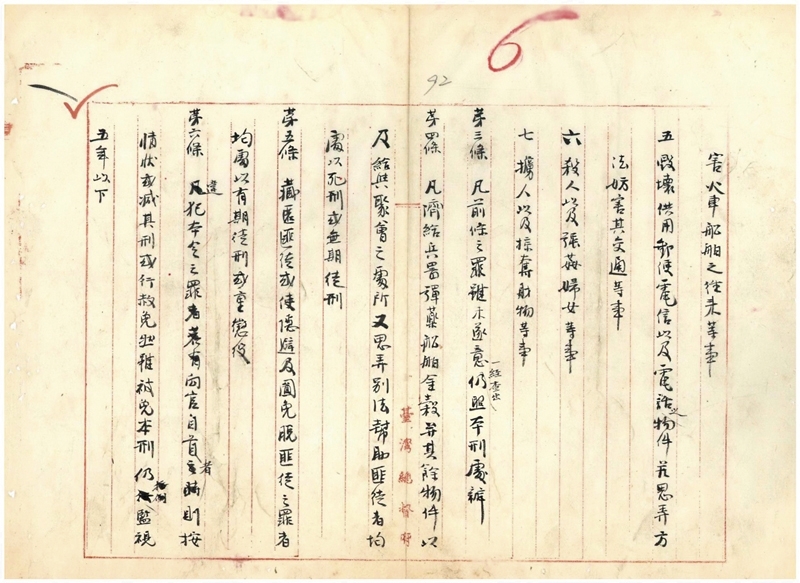 6
92
害火車船舶之往来等事
五 毀壞供用郵便電信以及電話之物件並思弄方
法妨害其交通等事
六 殺人以及强姦婦女等事
七 擄人以及掠奪財物等事
第三條 凡前條之罪雖未遂意一經查出仍照本刑處辦
第四條 凡濟給兵器彈藥船舶金穀并其餘物件以
及給與聚會之處所又思弄別法幇助匪徒者均
處以死刑或無期徒刑
臺灣總督府
第五條 藏匿匪徒或使隱避及圖免脫匪徒之罪者
均處以有期徒刑或重懲役
第六條 凡違犯本令之罪者若有向官自首者則按
情狀或減其刑或行赦免然雖被免本刑仍監視
五年以下